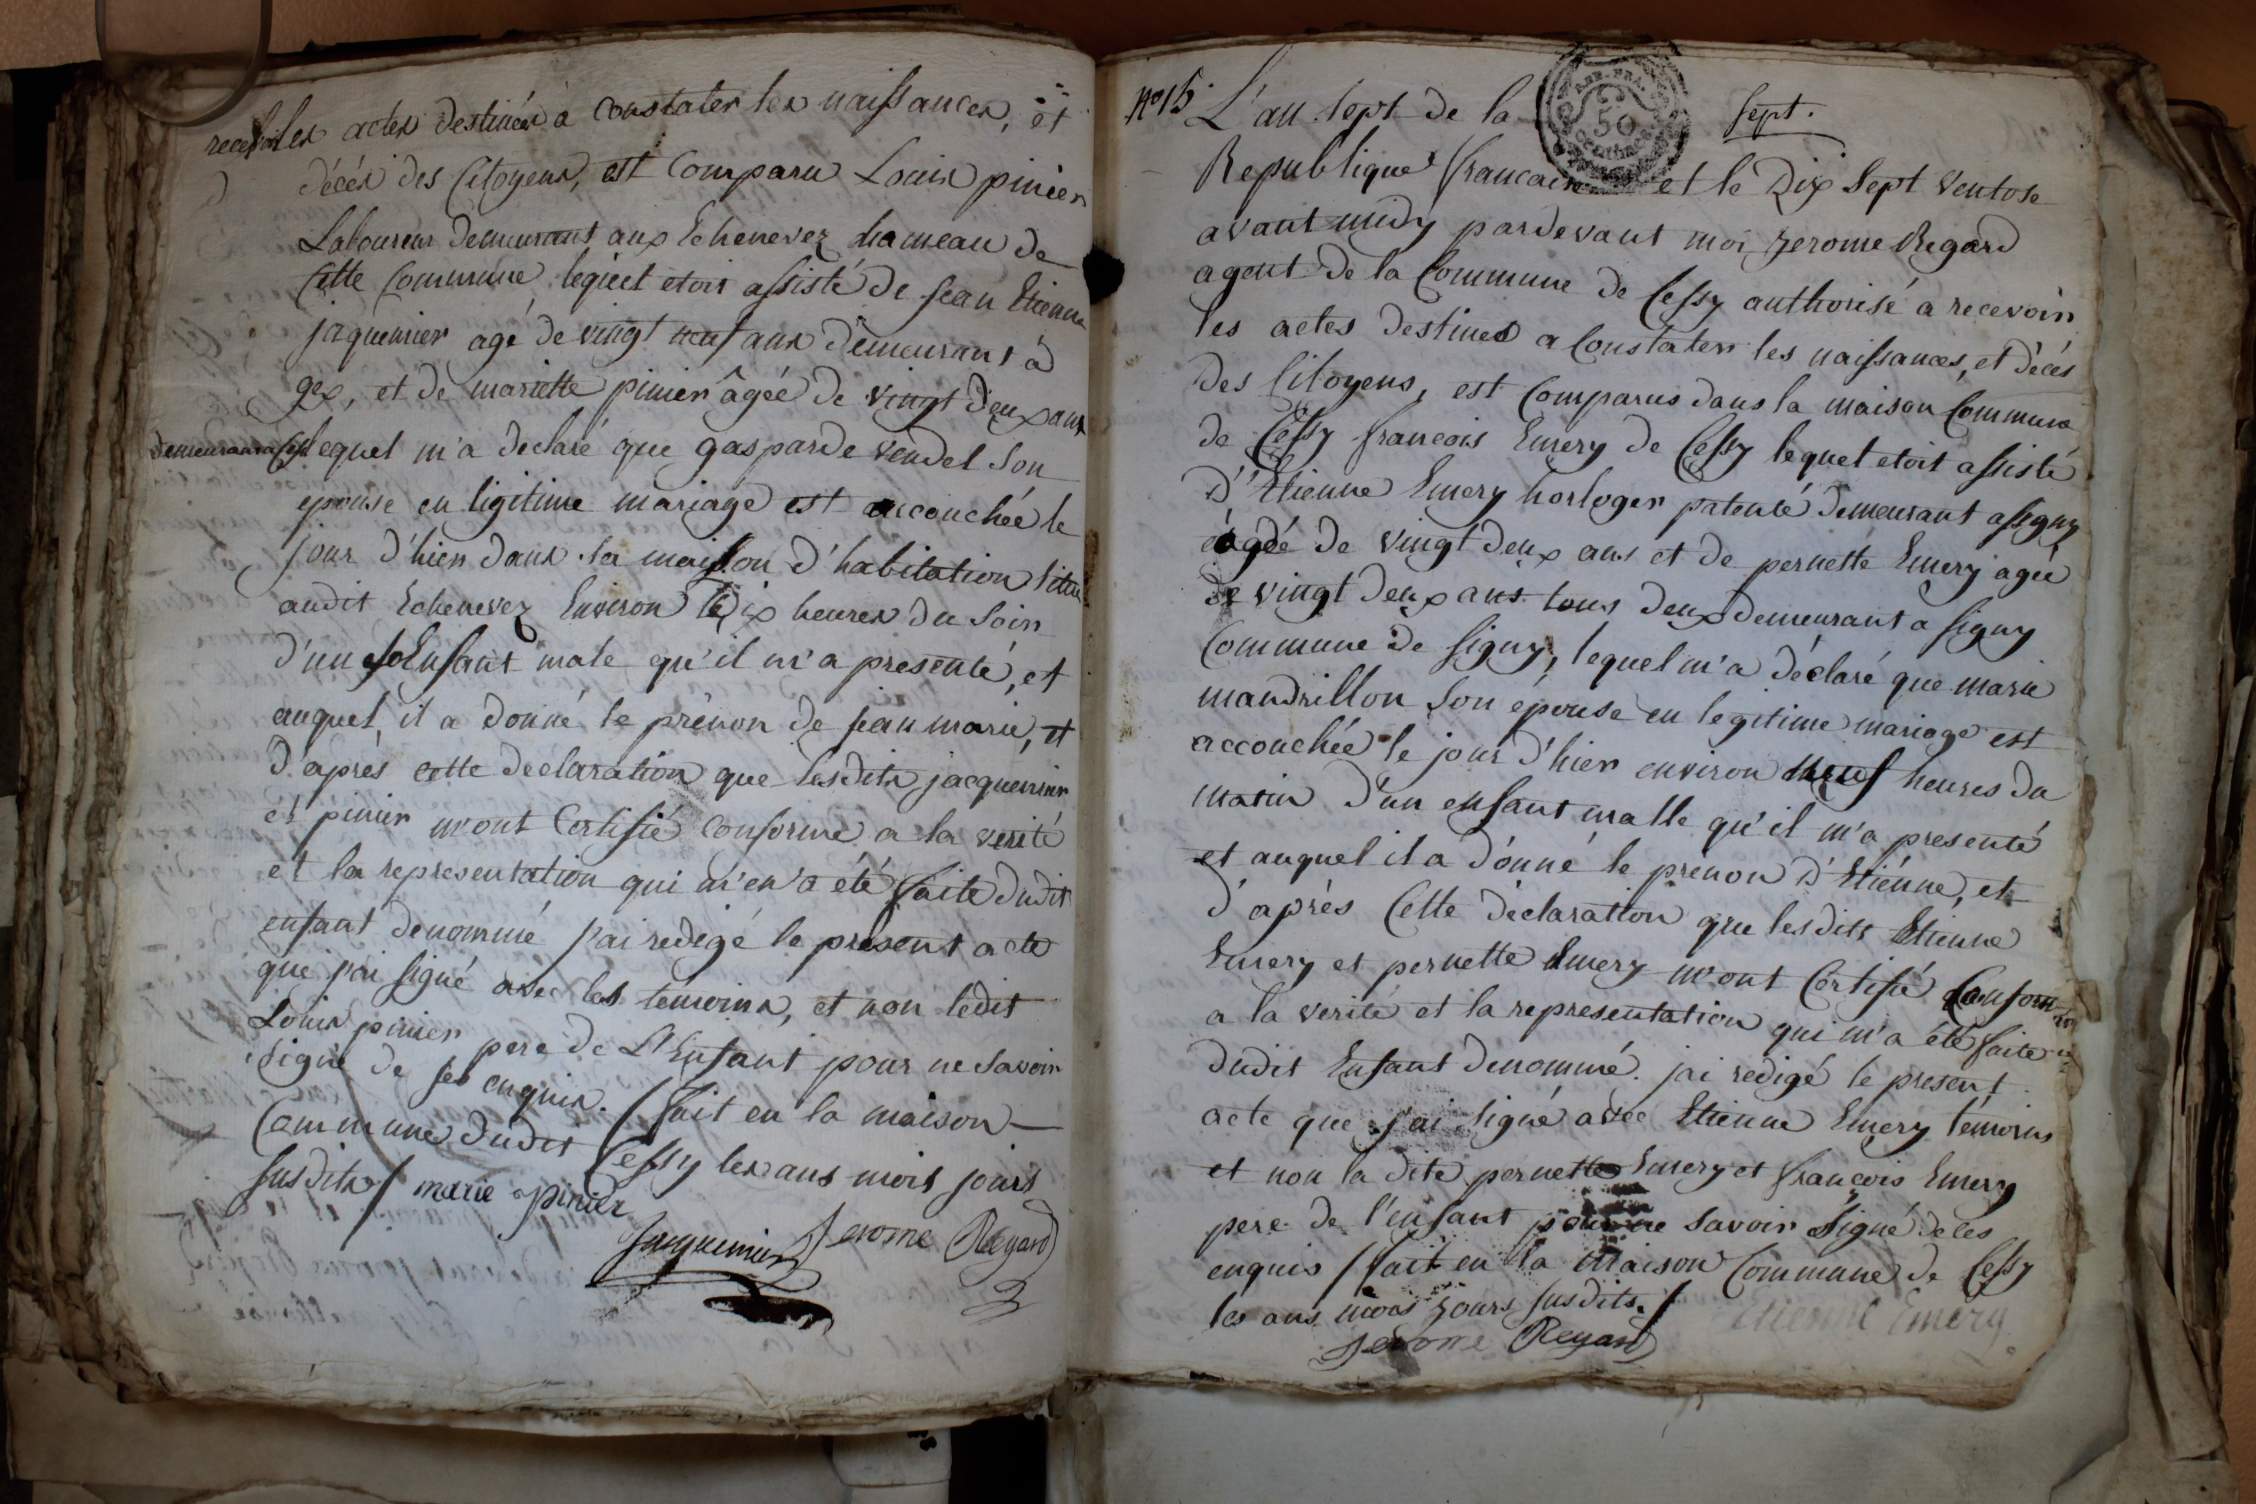 recevoir les actes destinées à constater les naissances, et
décés des Citoyens, est Comparu Louis pinier
Laboureur demeurant aux Echenevez hameau de
Cette Commune, lequel etoit assisté de jean Etienne
jaquemier agé de vingt neuf ans demeurant à
gex, et de mariette pinier âgée de vingt deux ans
demeurant a Cessy lequel m'a declaré que gasparde vendel son
epouse en ligitime mariage est accouchée le
jour d'hier dans la maison d'habitation située
audit Echenevez Environ dix heures du soir
d'un Enfant male qu'il m'a presenté, et
auquel, il a donné le prénon de jean marie, et
d'aprés cette déclaration que lesdits jacquemier
et pinier m'ont Certifié conforme a la verité
et la representation qui m'en a été faite dudit
enfant denommé j'ai redigé le present acte
que j'ai signé avec les temoins, et non ledit
Louis pinier pere de L'Enfant pour ne savoir
signé de ses enquis. / fait en la maison
Commune dudit Cessy les ans mois jours
susdits / marie pinier
Jaquemier Jerome Regard
N° 15 L'an sept de la sept.
REP. FRA.
50
Centimes
Republique francaise et le Dix sept ventose
avant midy pardevant moi jerome Regard
agent de la Commune de Cessy authorisé a recevoir
les actes destines a Constater les naissances, et décés
des Citoyens, est Comparus dans la maison Commune
de Cessy francois Emery de Cessy lequel etoit assisté
d'Etienne Emery horloger patenté demeurant a segny
âgée de vingt deux ans et de pernette Emery agée
de vingt deux ans tous deux demeurant a signy
Commune de signy, lequel m'a déclaré que marie
mandrillon son épouse en legitime mariage est
accouchée le jour d'hier environ neuf heures du
matin d'un enfant malle qu'il m'a presenté
et auquel il a donné le prénon d'Etiénne, et
d'aprés Cette déclaration que lesdits Etienne
Emery et pernette Emery m'ont Certifié Conforme
a la verité et la representation qui m'a été faite
dudit Enfant denommé. jai redigé le present
acte que j'ai signé avec Etienne Emery témoins
et non la dite pernette Emery et françois Emery
pere de l'enfant pour ne savoir signé de ces
enquis / fait en la Maison Commune de Cessy
les ans mois jours susdits. /
Etienne Emery
Jerome Regard